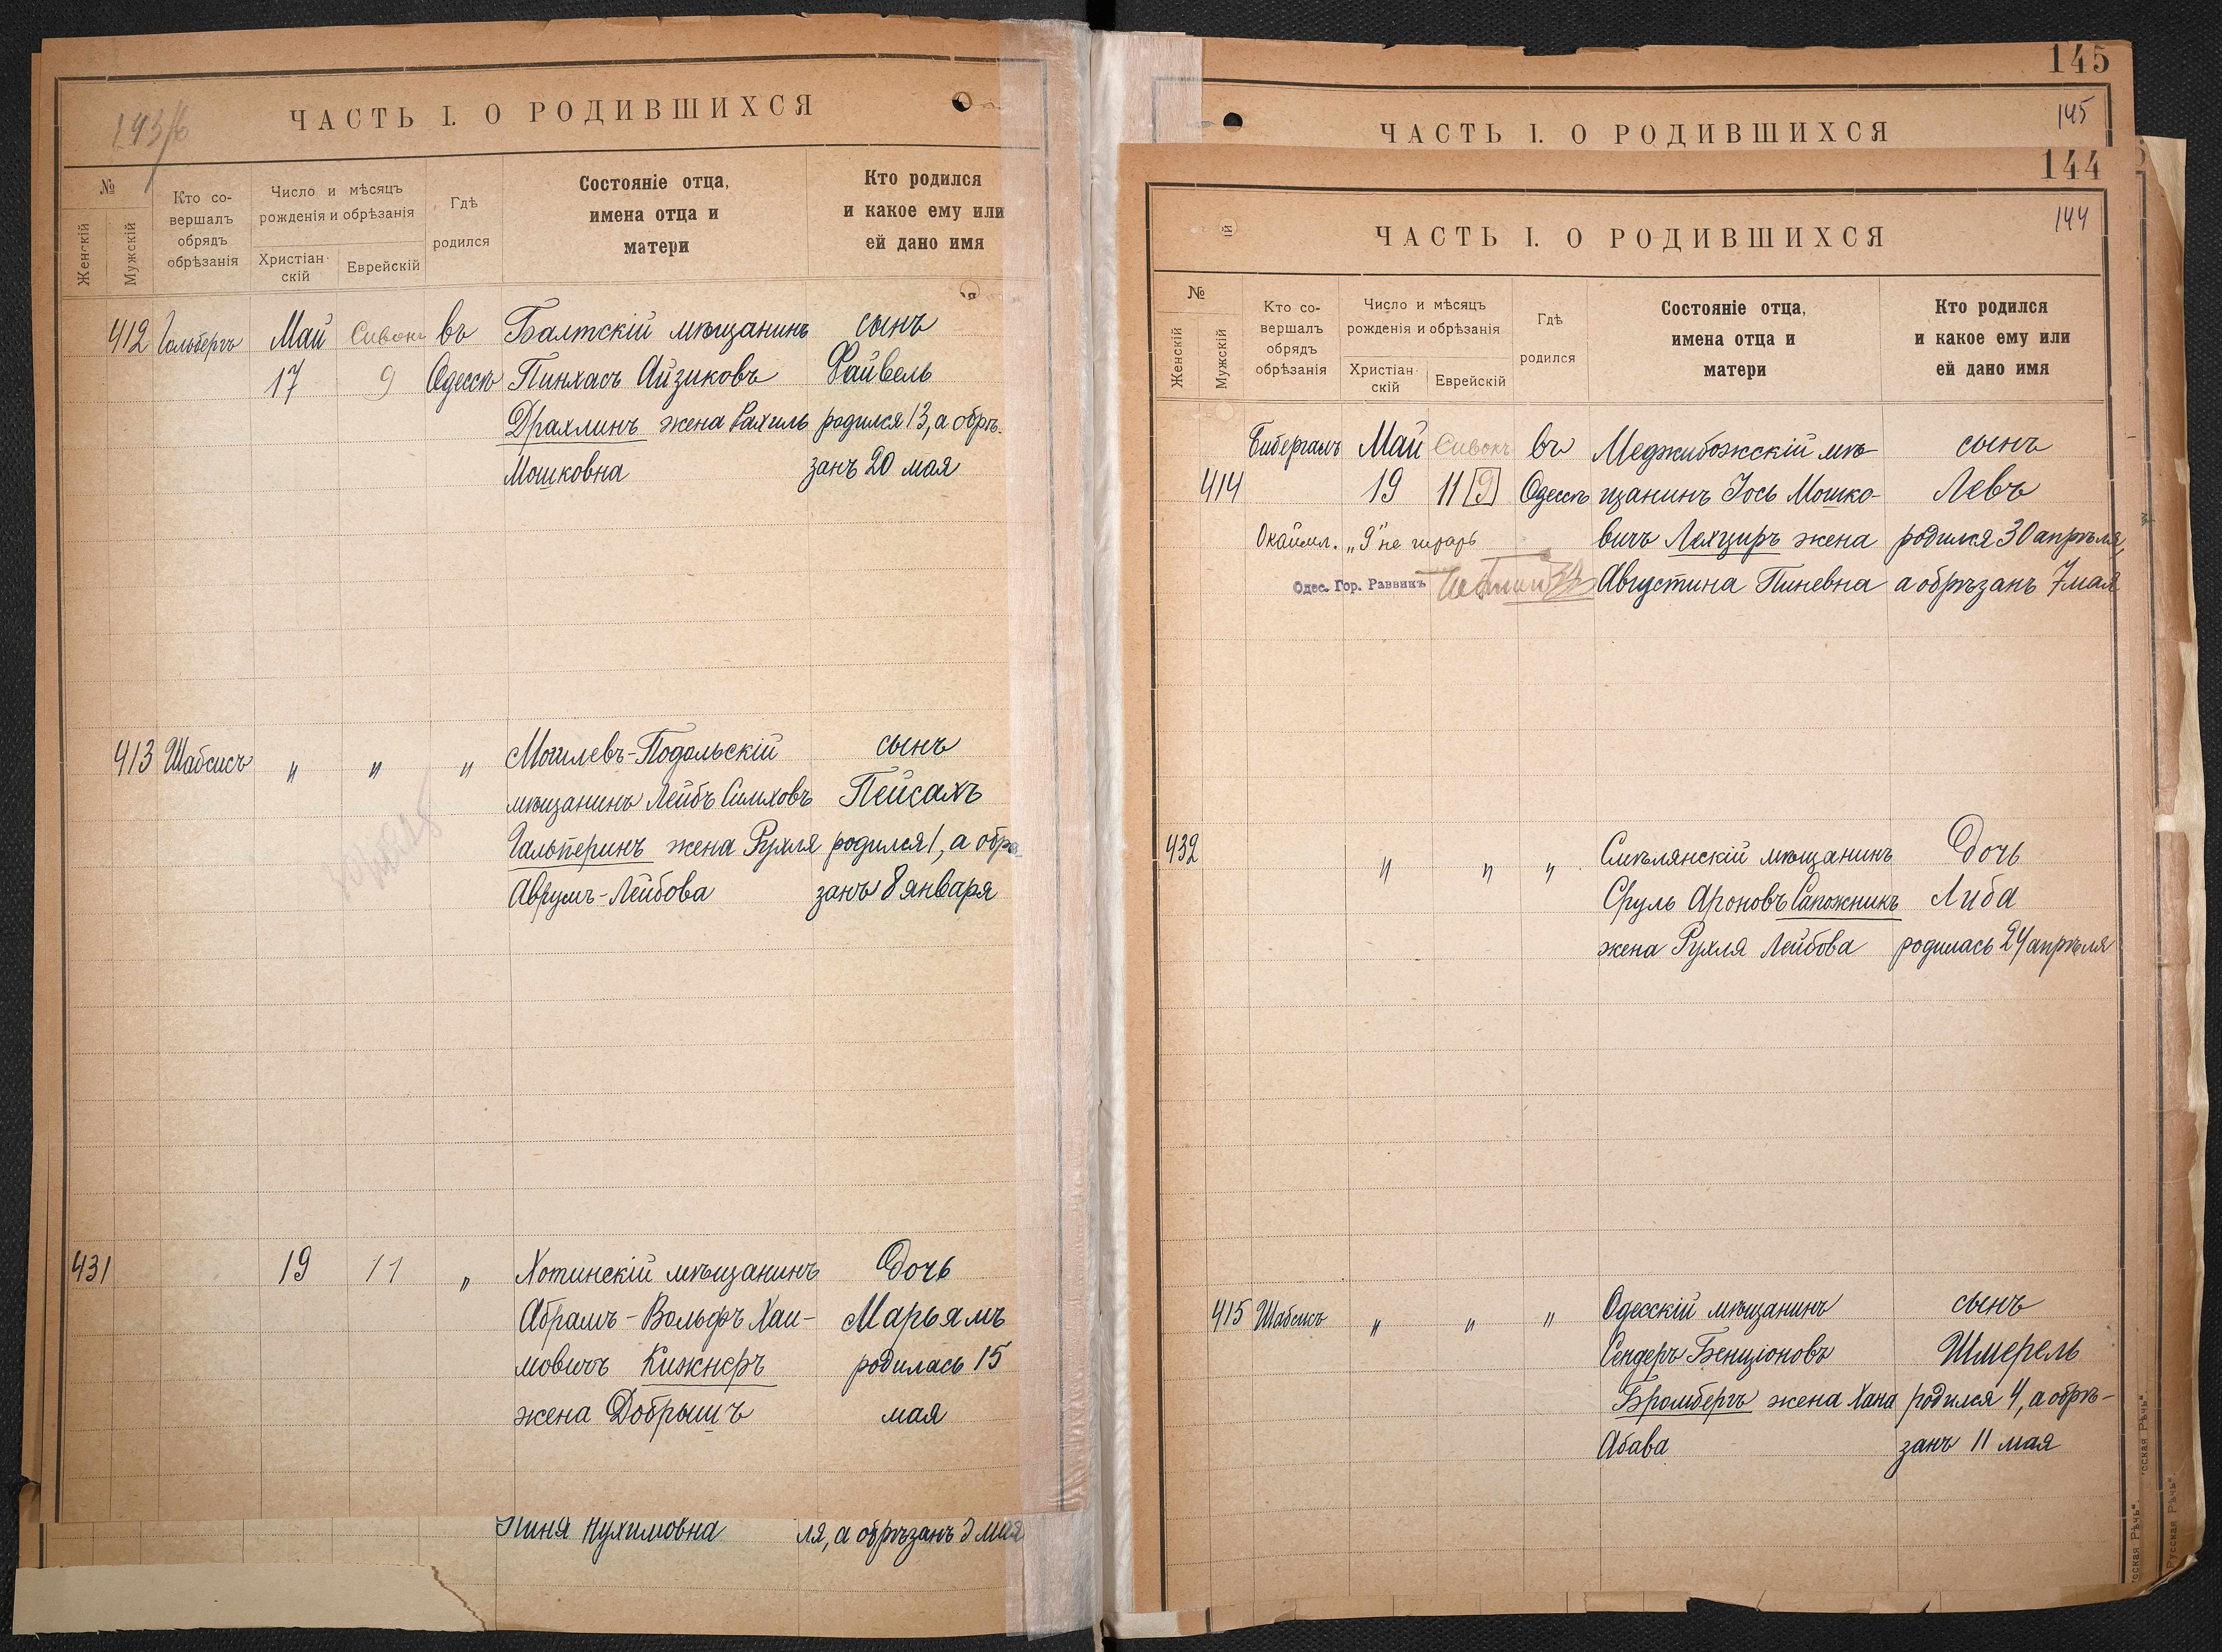 ЧАСТЬ I. О РОДИВШИХСЯ
№
Женскій
Мужскій
Кто со-
вершалъ
обрядъ
обрѣзанія
Число и мѣсяцъ
рожденія и обрѣзанія
Христіан-
скій
Еврейскій
Гдѣ
родился
Состояніе отца,
имена отца и
матери
Кто родился
и какое ему или
ей дано имя
412 Гольбергъ Май Сивонъ въ Балтскій мѣщанинъ сынъ
17 9 Одессѣ Пинхасъ Айзиковъ Файвель
Драхлинъ жена Рахиль родился 13, а обрѣ-
Мошковна занъ 20 мая
413 Шабсисъ " " " Могилевъ-Подольскій сынъ
мѣщанинъ Лейбъ Симховъ Пейсахъ
Гальперинъ жена Рухля родился 1, а обрѣ-
Аврумъ-Лейбова занъ 8 января
431 19 11 " Хотинскій мѣщанинъ Дочь
Абрамъ-Вольфъ Хаи- Марьямъ
мовичъ Кижнеръ родилась 15
жена Добрышъ мая
Нухимовна ля, а обрѣзанъ мая
145
145
ЧАСТЬ I. О РОДИВШИХСЯ
144
144
ЧАСТЬ I. О РОДИВШИХСЯ
№
Женскій
Мужскій
Кто со-
вершалъ
обрядъ
обрѣзанія
Число и мѣсяцъ
рожденія и обрѣзанія
Христіан-
скій
Еврейскій
Гдѣ
родился
Состояніе отца,
имена отца и
матери
Кто родился
и какое ему или
ей дано имя
Бибергалъ Май Сивонъ въ Меджибожскій мѣ- сынъ
414 19 11 [9] Одессѣ щанинъ Іось Мошко- Левъ
Окаймл. "9" не читать вичъ Лехциръ жена родился 30 апрѣля,
Одес. Гор. Раввинъ Августина Пиневна а обрѣзанъ 7 мая
432 " " " Смѣлянскій мѣщанинъ Дочь
Сруль Ароновъ Сапожникъ Либа
жена Рухля Лейбова родилась 24 апрѣля
415 Шабсисъ " " " Одесскій мѣщанинъ сынъ
Сендеръ Бенціоновъ Шмерель
Бромбергъ жена Хана родился 4, а обрѣ-
Абава занъ 11 мая
"Русская Рѣчь".